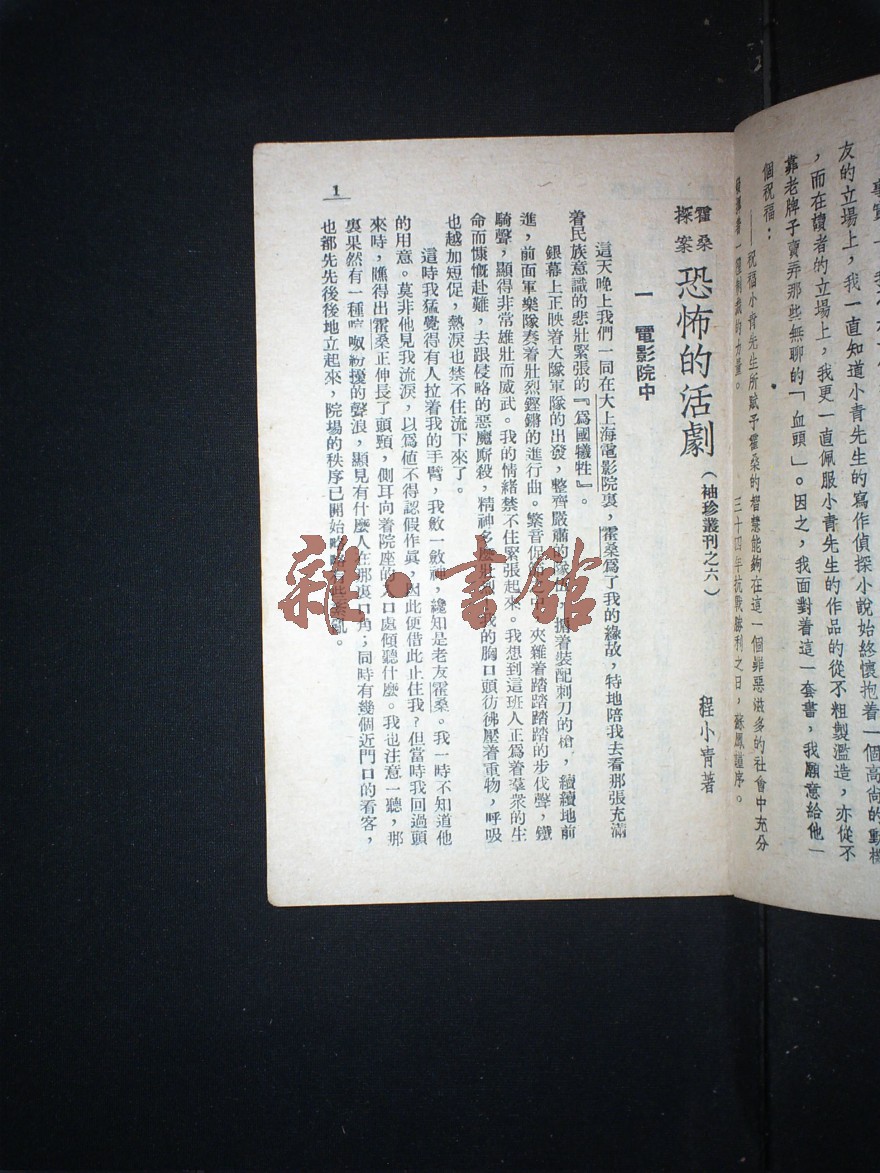 友的立場上，我一直知道小青先生的寫作偵探小說始終懷抱着一個高尚的動機
，而在讀者的立場上，我更一直佩服小青先生的作品的從不粗製濫造，亦從不
靠老牌子賣弄那些無聊的「血頭」。因之，我面對着這一套書，我願意給他一
個祝福：
——祝福小青先生所賦予霍桑的智慧能夠在這一個罪惡滋多的社會中充分
的力量。
三十四年抗戰勝利之日，蘇鳳謹序。
霍桑探案 恐怖的活劇（袖珍叢刊之六） 程小青著
一 電影院中
這天晚上我們一同在大上海電影院裏，霍桑爲了我的緣故，特地陪我去看那張充滿
着民族意識的悲壯緊張的『爲國犧牲』。
銀幕上正映着大隊軍隊的出發，整齊嚴肅的隊伍，掮着裝配刺刀的槍，續續地前
進，前面軍樂隊奏着壯烈鏗鏘的進行曲。繁音促節之中，夾雜着踏踏踏踏的步伐聲，鐵
騎聲，顯得非常雄壯而威武。我的情緒禁不住緊張起來。我想到這班人正爲着羣衆的生
命而慷慨赴難，去跟侵略的惡魔廝殺，精神多麽壯烈，我的胸口頭彷彿壓着重物，呼吸
也越加短促，熱淚也禁不住流下來了。
這時我猛覺得有人拉着我的手臂，我斂一斂神，纔知是老友霍桑。我一時不知道他
的用意。莫非他見我流淚，以爲値不得認假作眞，因此便借此止住我？但當時我回過頭
來時，瞧得出霍桑正伸長了頭頸，側耳向着院座的入口處傾聽什麽。我也注意一聽，那
裏果然有一種喧呶紛擾的聲浪，顯見有什麽人在那裏口角；同時有幾個近門口的看客，
也都先先後後地立起來，院場的秩序已開始略略有些紊亂。
1
雜·書館